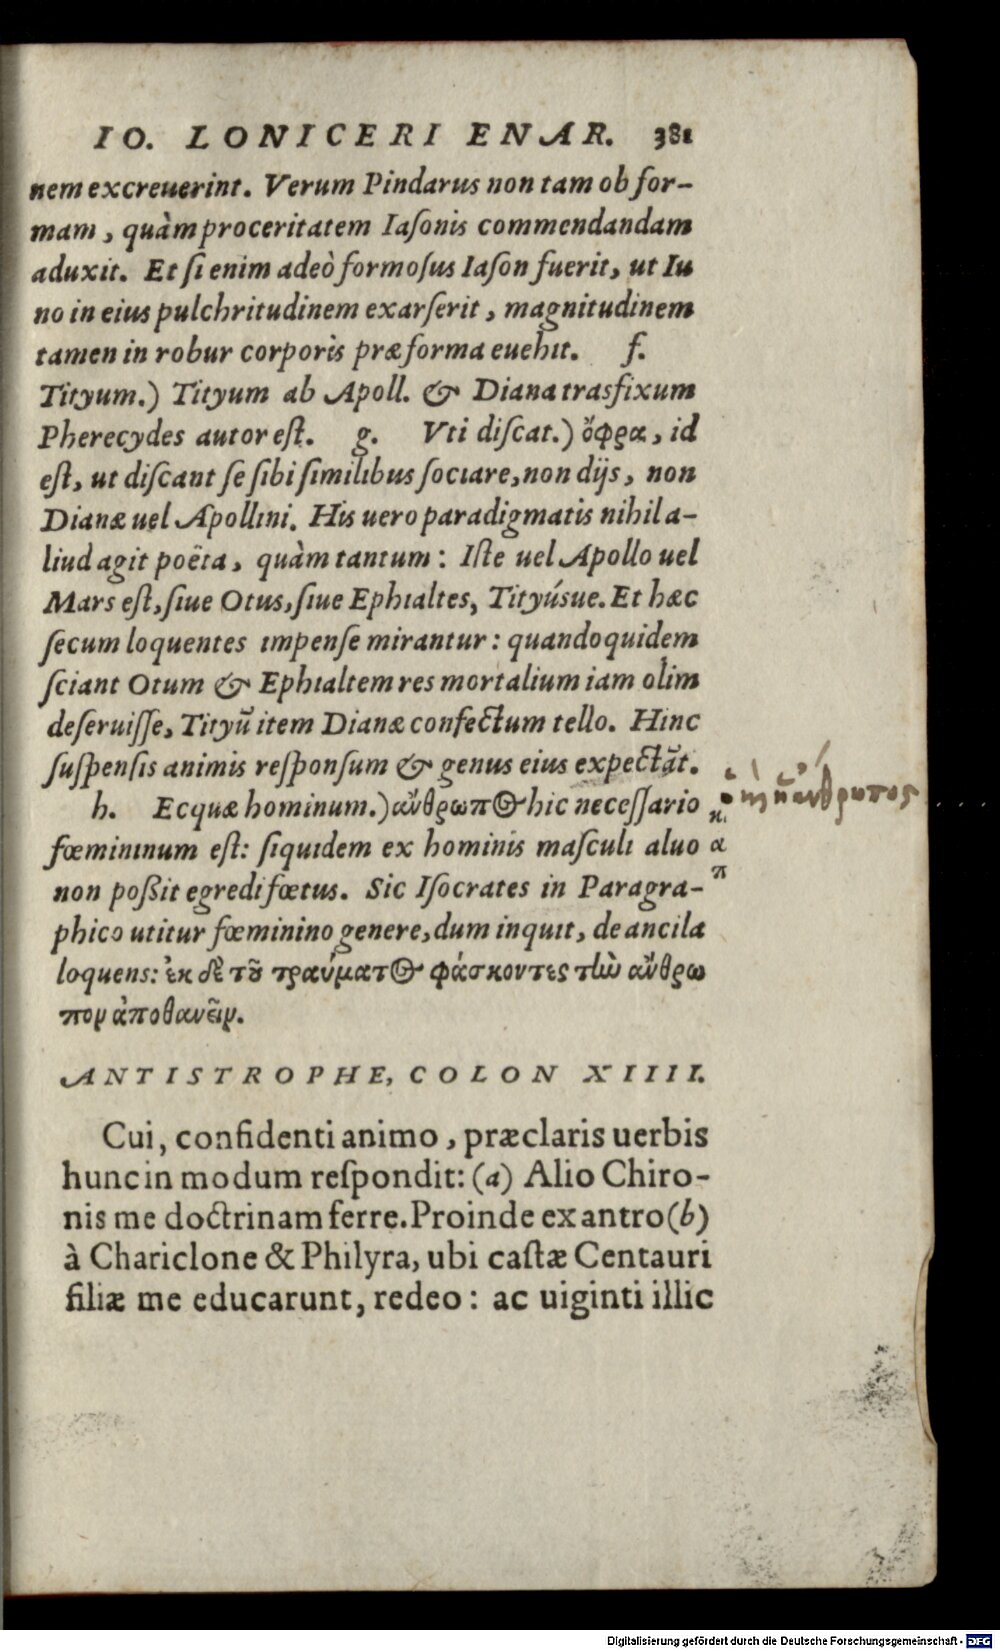 IO. LONICERI ENAR. 381
nem excreuerint. Verum Pindarus non tam ob for-
mam, quàm proceritatem Iaſonis commendandam
aduxit. Et ſi enim adeò formoſus Iaſon fuerit, ut Iu
no in eius pulchritudinem exarſerit, magnitudinem
tamen in robur corporis præ forma euehit. f.
Tityum.) Tityum ab Apoll. & Diana trasfixum
Pherecydes autor eſt. g. Vti diſcat.) ὄφρα, id
eſt, ut diſcant ſe ſibi ſimilibus ſociare, non dijs, non
Dianæ uel Apollini. His uero paradigmatis nihil a-
liud agit poëta, quàm tantum: Iſte uel Apollo uel
Mars eſt, ſiue Otus, ſiue Ephialtes, Tityúsue. Et hæc
ſecum loquentes impenſe mirantur: quandoquidem
ſciant Otum & Ephialtem res mortalium iam olim
deſeruiſſe, Tityũ item Dianæ confectum tello. Hinc
ſuſpenſis animis reſponſum & genus eius expectãt.
h. Ecquæ hominum.) ἄνθρωπος hic neceſſario
fœmininum eſt: ſiquidem ex hominis maſculi aluo
non poßit egredi fœtus. Sic Iſocrates in Paragra-
phico utitur fœminino genere, dum inquit, de ancila
loquens: ἐκ δὲ τοῦ τραύματος φάσκοντες τὴν ἄνθρω
πον ἀποθανεῖν.
ὁ ἡ ἄνθρωπος
κ.
α
π
ANTISTROPHE, COLON XIIII.
Cui, confidenti animo, præclaris uerbis
hunc in modum reſpondit: (a) Alio Chiro-
nis me doctrinam ferre. Proinde ex antro (b)
à Chariclone & Philyra, ubi caſtæ Centauri
filiæ me educarunt, redeo: ac uiginti illic
Digitalisierung gefördert durch die Deutsche Forschungsgemeinschaft - DFG